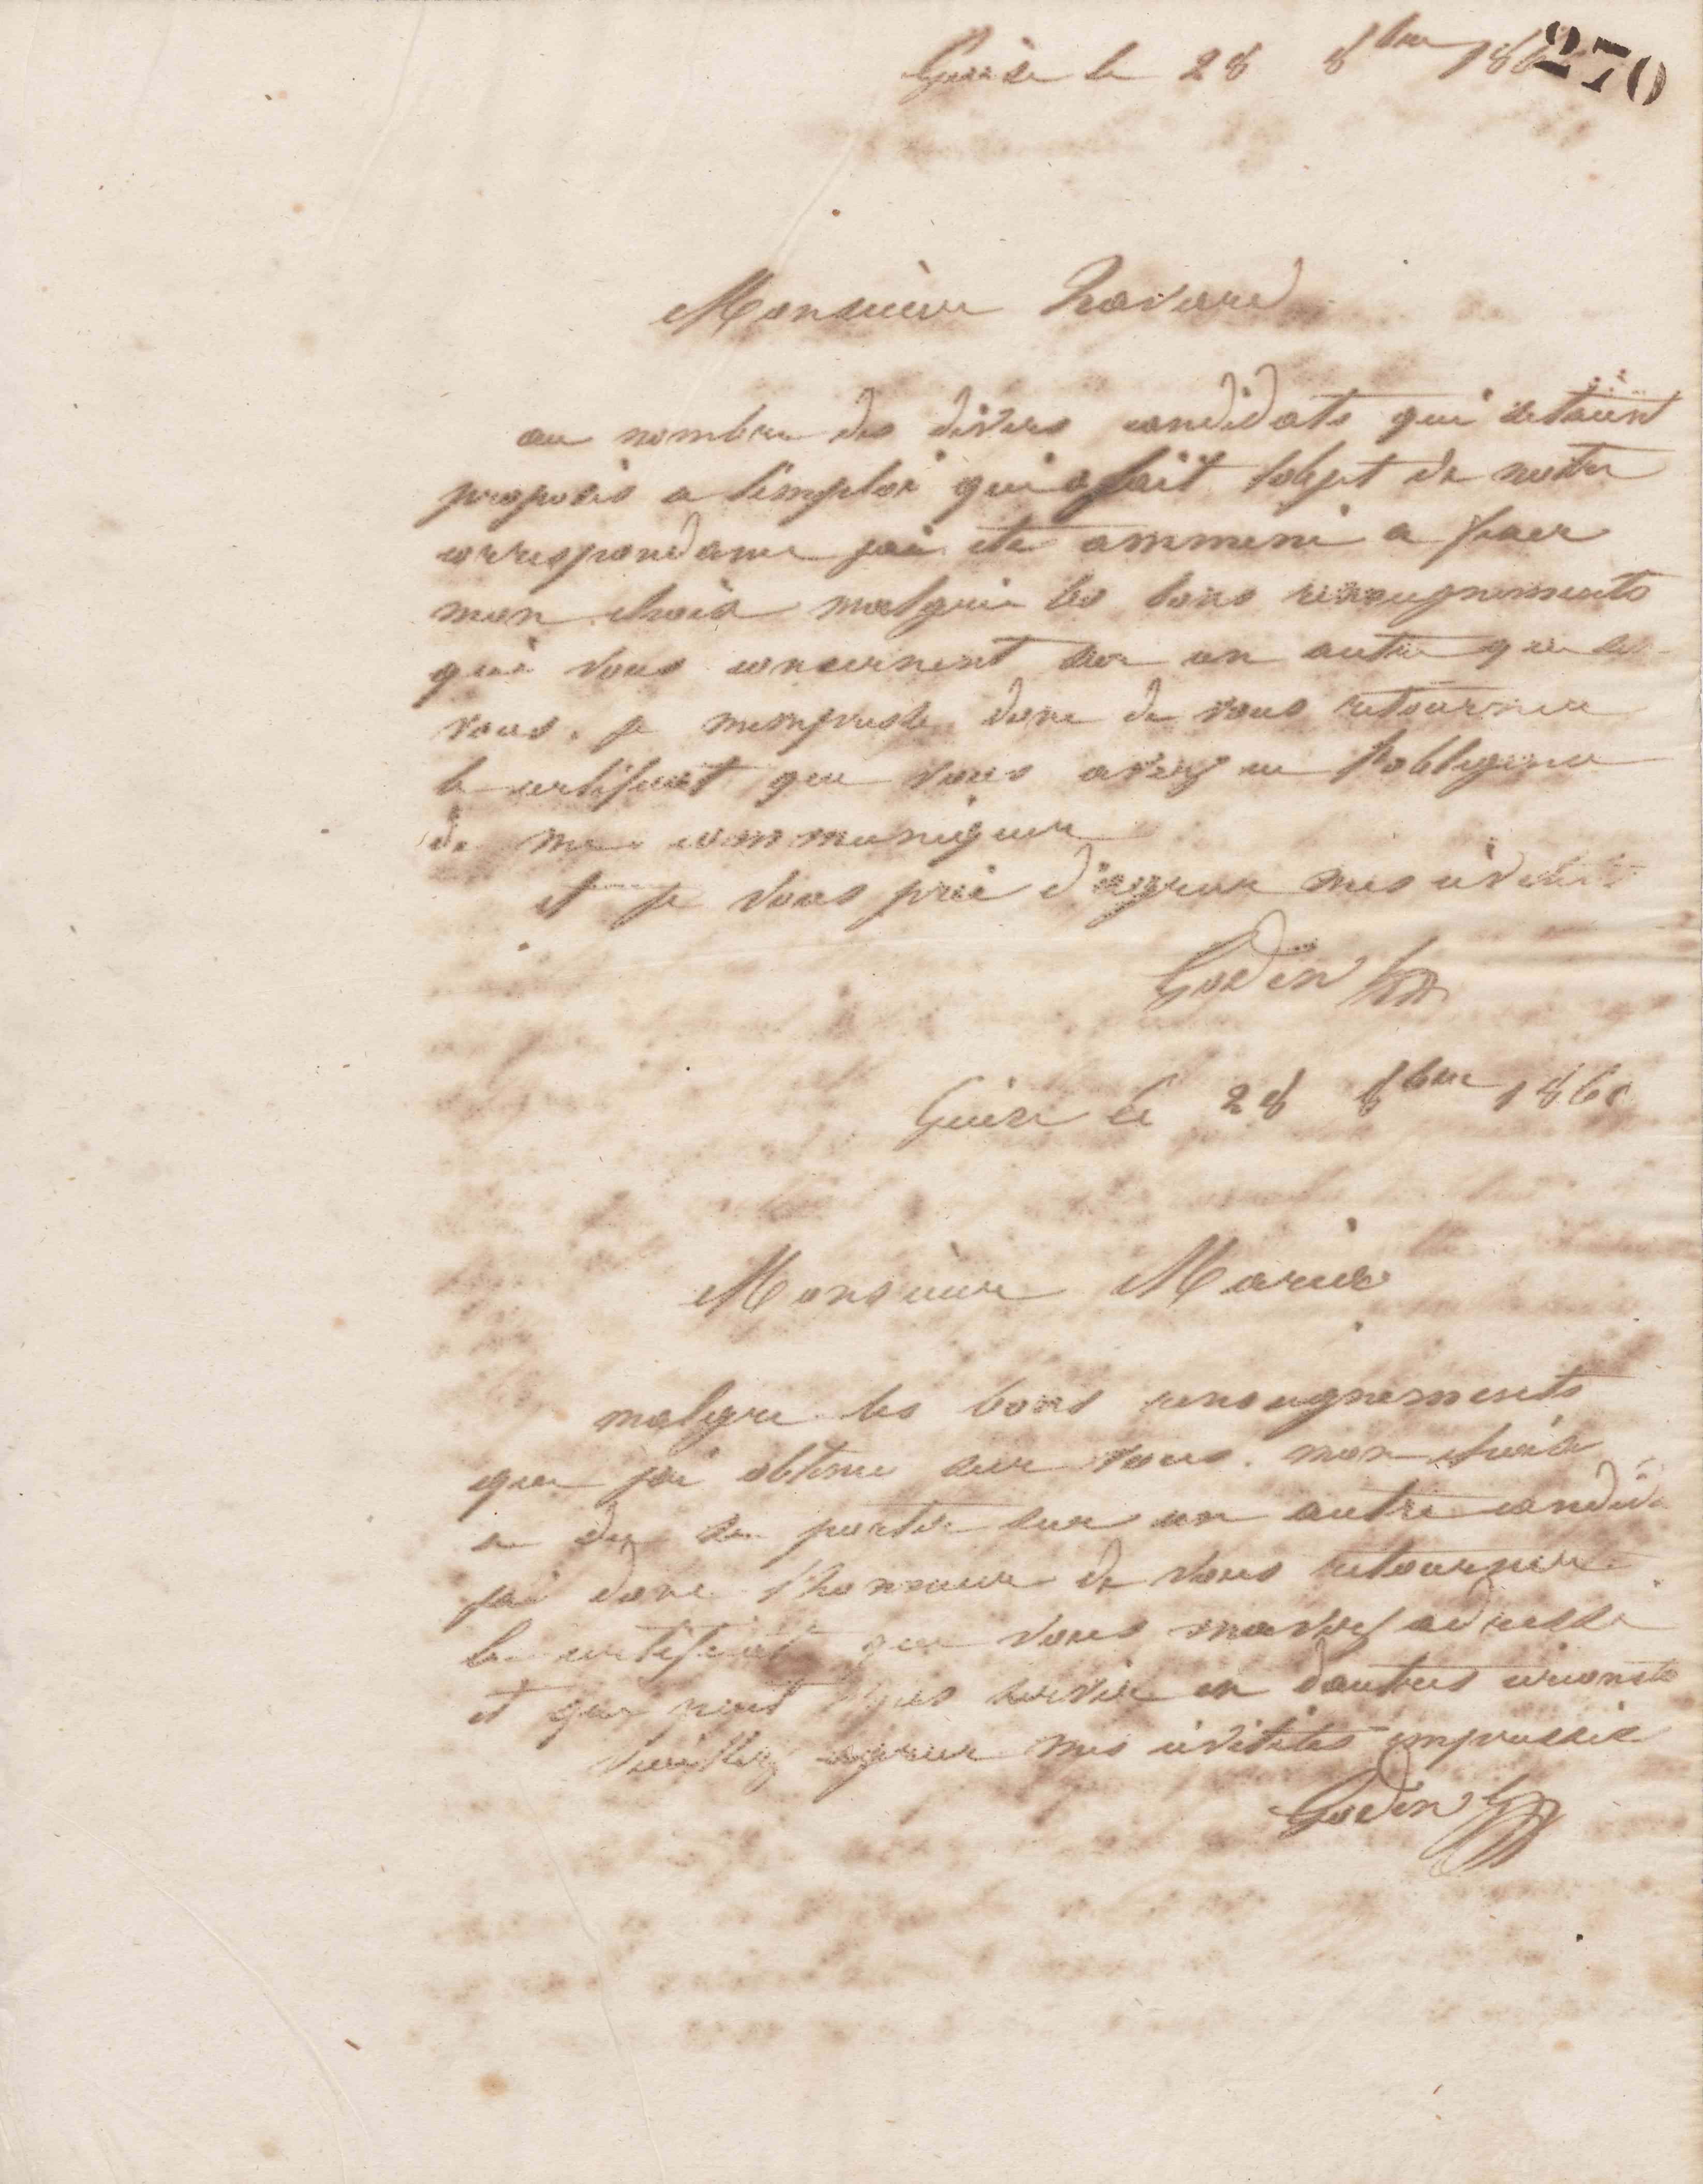 Guise le 28 8bre 186
270
Monsieur Havard
au nombre des divers candidats qui setaient
proposés a lemploi qui a fait lobjet de notre
correspondance jai ete ammené a fixer
mon choix malgré les bons renseignements
qui vous concernent sur un autre que
vous. je mempresse donc de vous retourner
le certificat que vous avez eu lobligence
de me communiquer
et je vous prie d'agreer mes civilités
Godin
Guise le 28 8bre 1860
Monsieur Marié
malgre les bons renseignements
que jai obtenu sur vous. mon choix
a du se porter sur un autre candida
jai donc lhonneur de vous retourner
le certificat que vous mavez adressé
et qui peut vous servir en dautres circonsta
Veuillez agreer mes civilités empressées
Godin